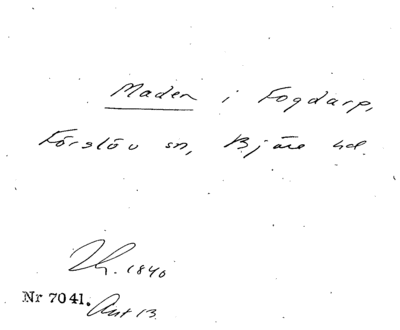 Maden i Fogdarp,
Förslöv sn, Bjäre hd.
1840
Nr 7041. Ant 13